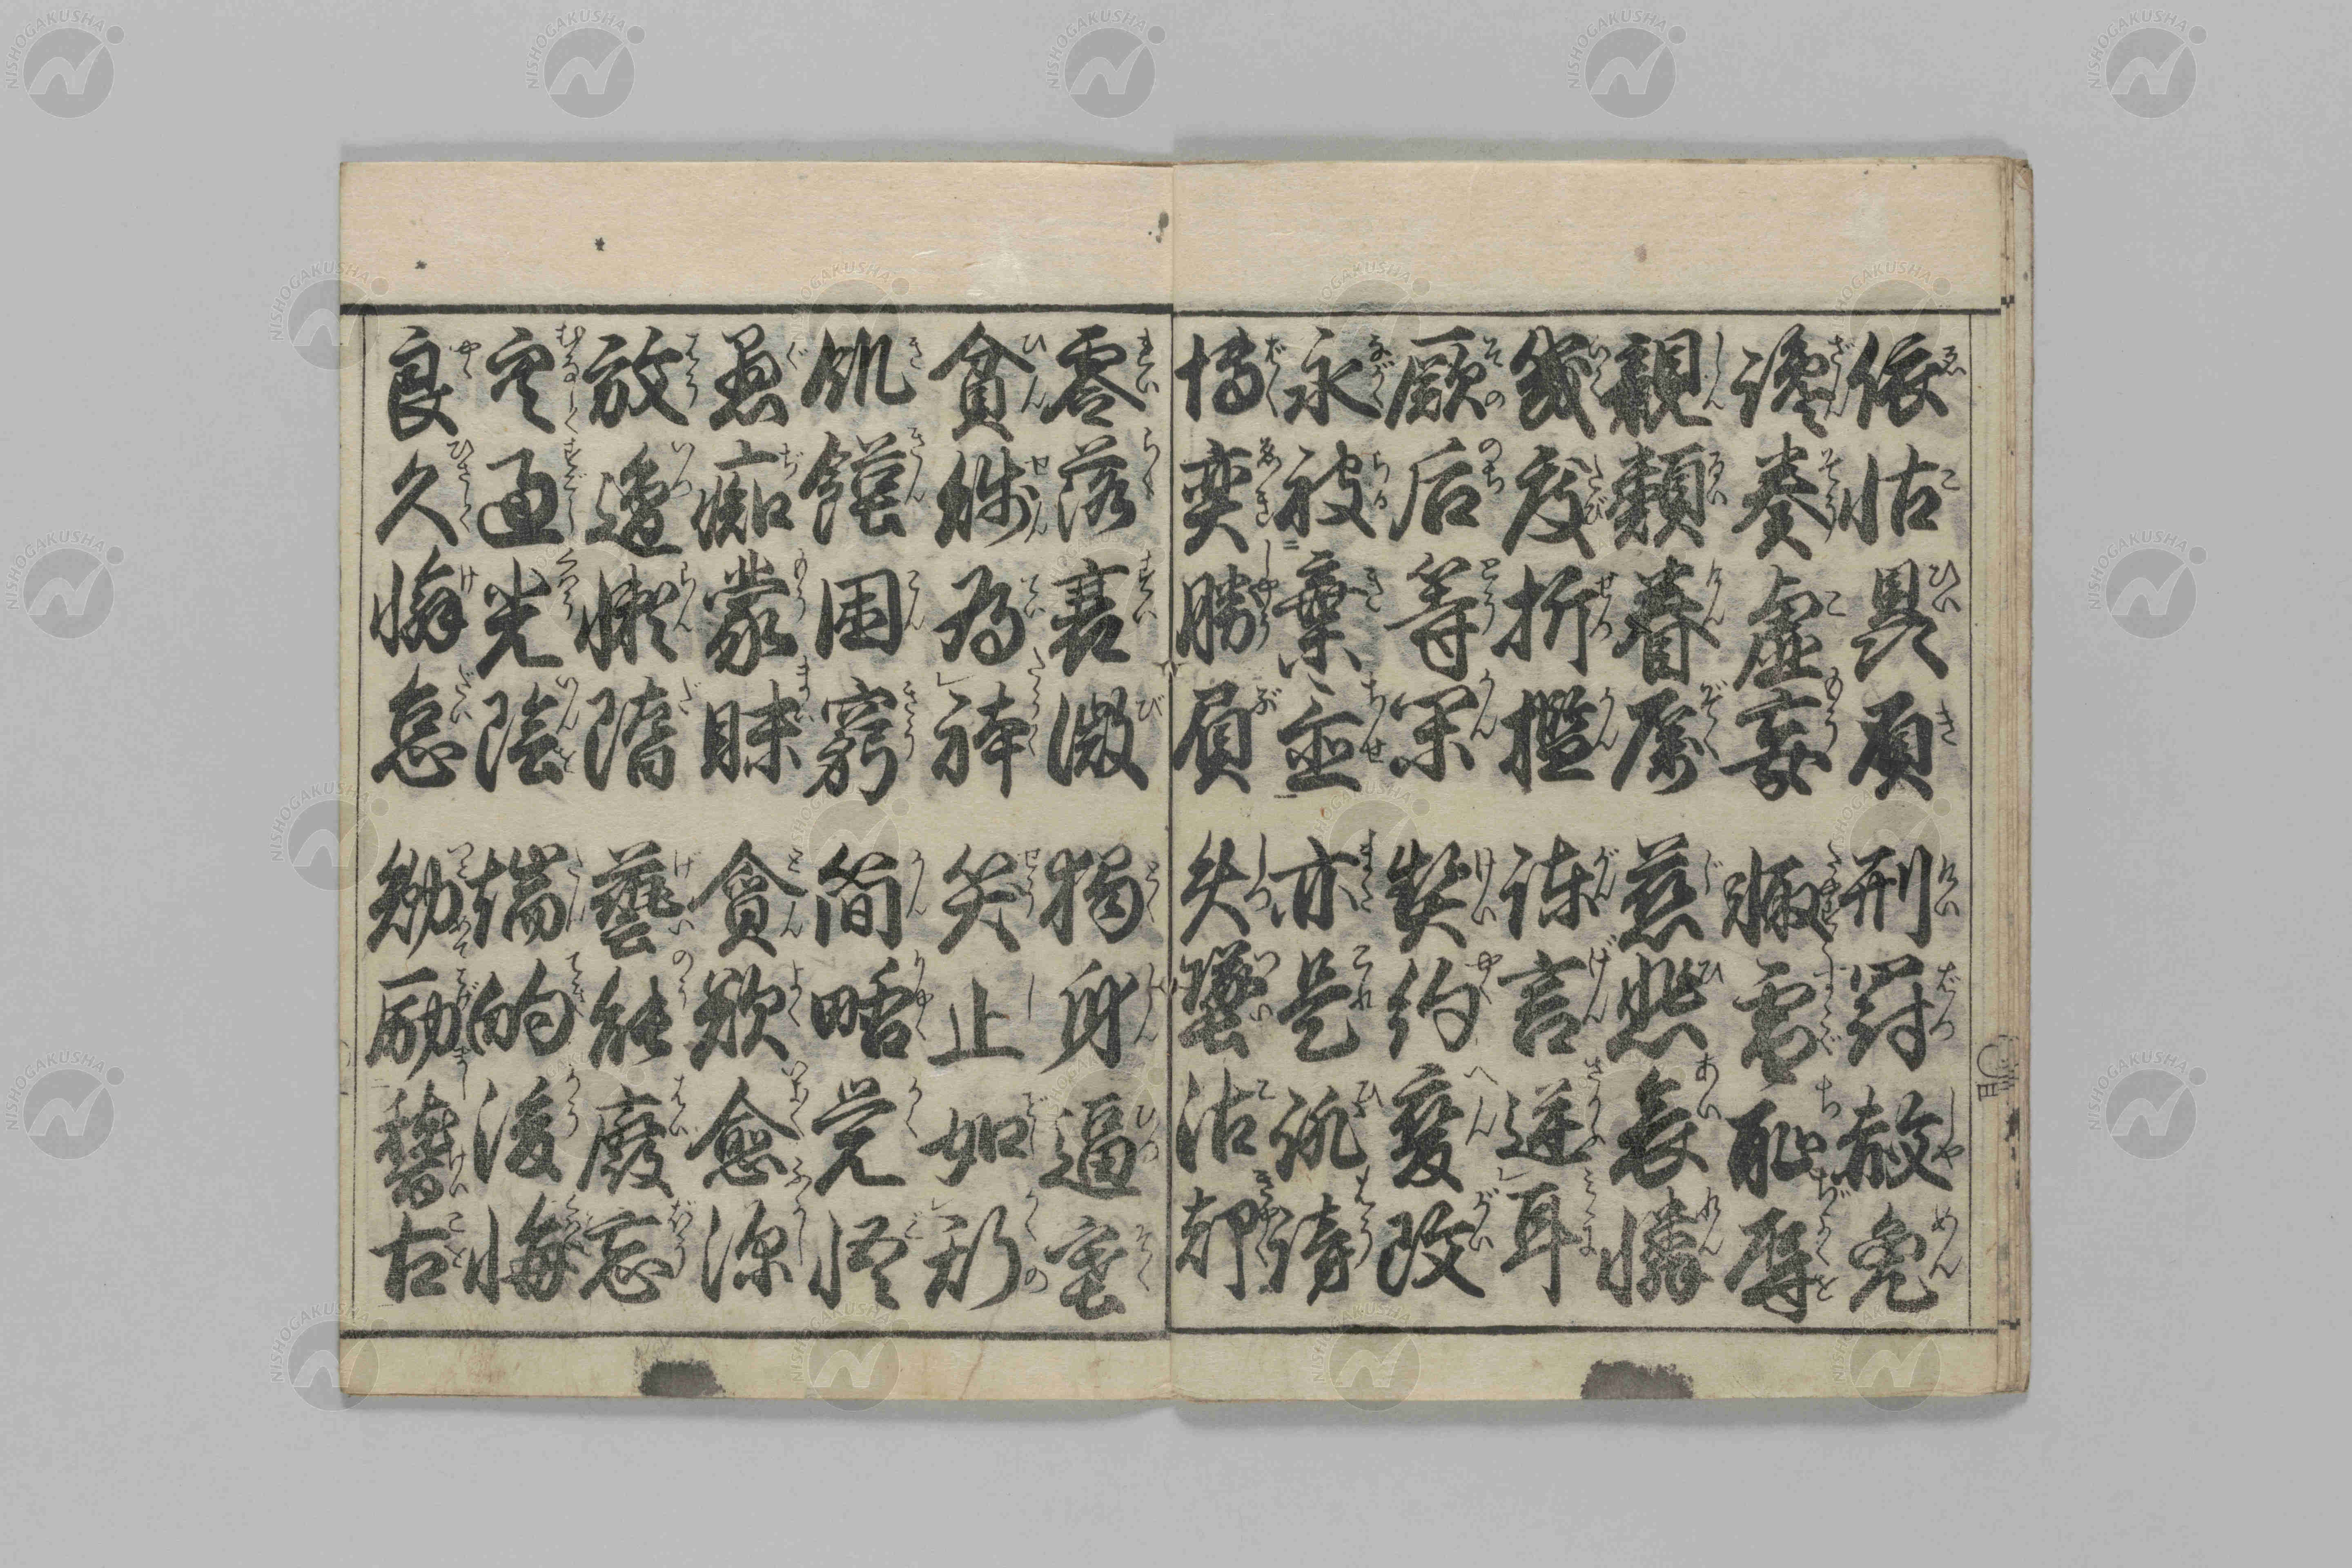 依怙贔屓 刑罰赦免
讒奏虚妄 賑雪恥辱
親類眷属 慈悲哀憐
幾度折檻 諫言逆耳
厥后等閑 契約変改
永被棄企 亦是誹謗
博奕勝負 失墜沽却
零落衰微 独身逼塞
貧賤為体 笑止如形
飢饉困窮 簡略覚悟
愚痴蒙昧 貪欲愈深
放逸懶惰 藝能廃忘
空過光陰 端的後悔
良久懈怠 勤励稽古
NISHOGAKUSHA